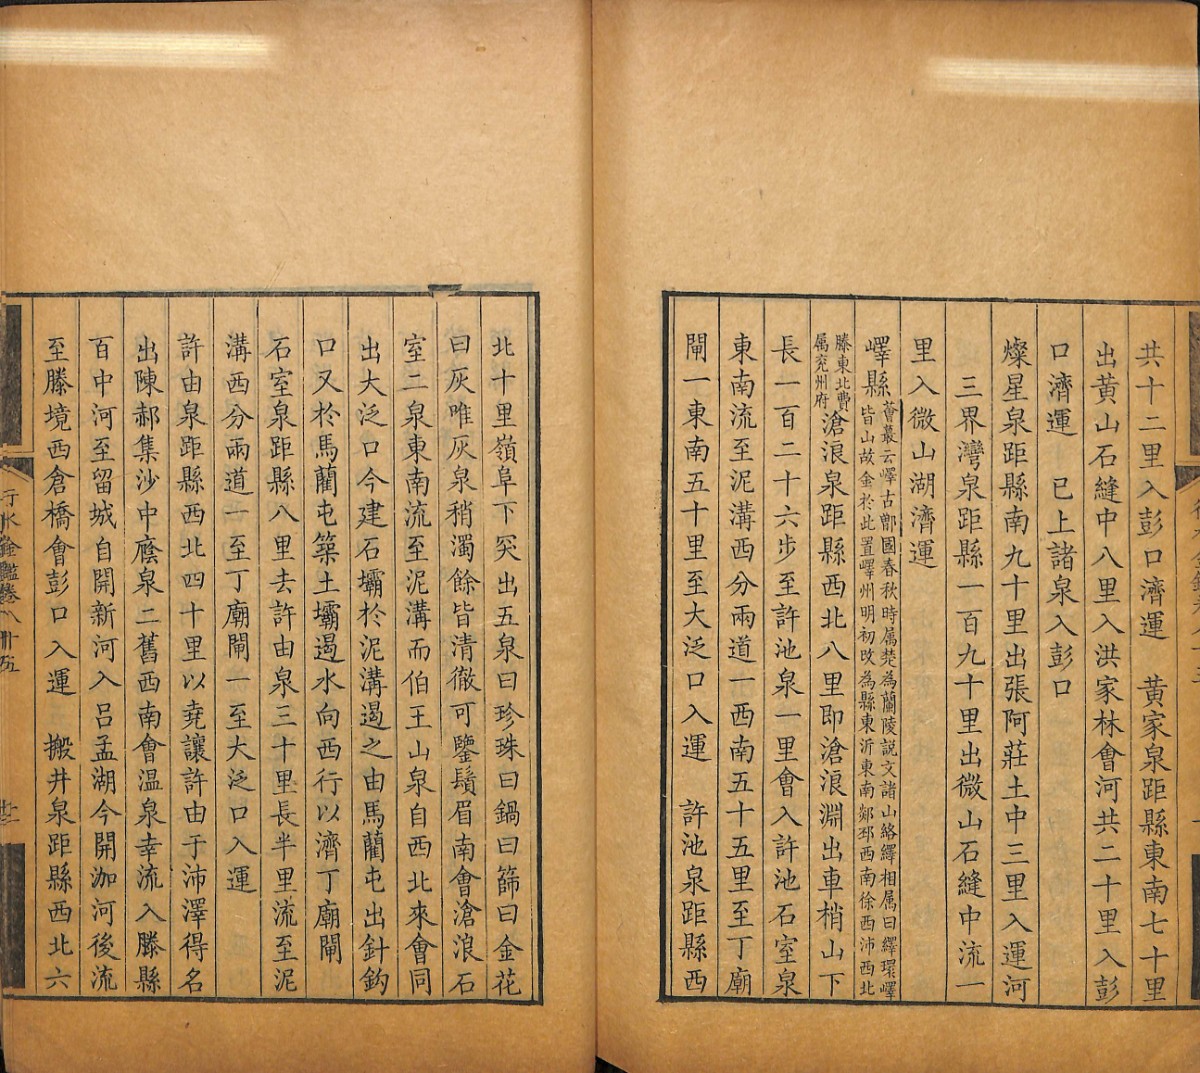 共十二里入彭口濟運　黃家泉距縣東南七十里
出黃山石縫中八里入洪家林會河共二十里入彭
口濟運　已上諸泉入彭口
燦星泉距縣南九十里出張阿莊土中三里入運河
三界灣泉距縣一百九十里出微山石縫中流一
里入微山湖濟運
嶧縣薈蕞云嶧古鄫國春秋時属楚為蘭陵説文諸山絡繹相属曰繹環嶧
皆山故金於此置嶧州明初改為縣東沂東南郯邳西南徐西沛西北
滕東北費
属兖州府
滄浪泉距縣西北八里即滄浪淵出車梢山下
長一百二十六步至許池泉一里會入許池石室泉
東南流至泥溝西分兩道一西南五十五里至丁廟
閘一東南五十里至大泛口入運　許池泉距縣西
北十里嶺阜下突出五泉曰珍珠曰鍋曰篩曰金花
曰灰唯灰泉稍濁餘皆清徹可鑒鬚眉南會滄浪石
室二泉東南流至泥溝而伯王山泉自西北來會同
出大泛口今建石壩於泥溝遏之由馬藺屯出針鈎
口又於馬藺屯築土壩遏水向西行以濟丁廟閘
石室泉距縣八里去許由泉三十里長半里流至泥
溝西分兩道一至丁廟閘一至大泛口入運
許由泉距縣西北四十里以堯讓許由于沛澤得名
出陳郝集沙中廕泉二舊西南會温泉幸流入滕縣
百中河至留城自開新河入呂孟湖今開泇河後流
至滕境西倉橋會彭口入運　搬井泉距縣西北六
行水金鑑卷